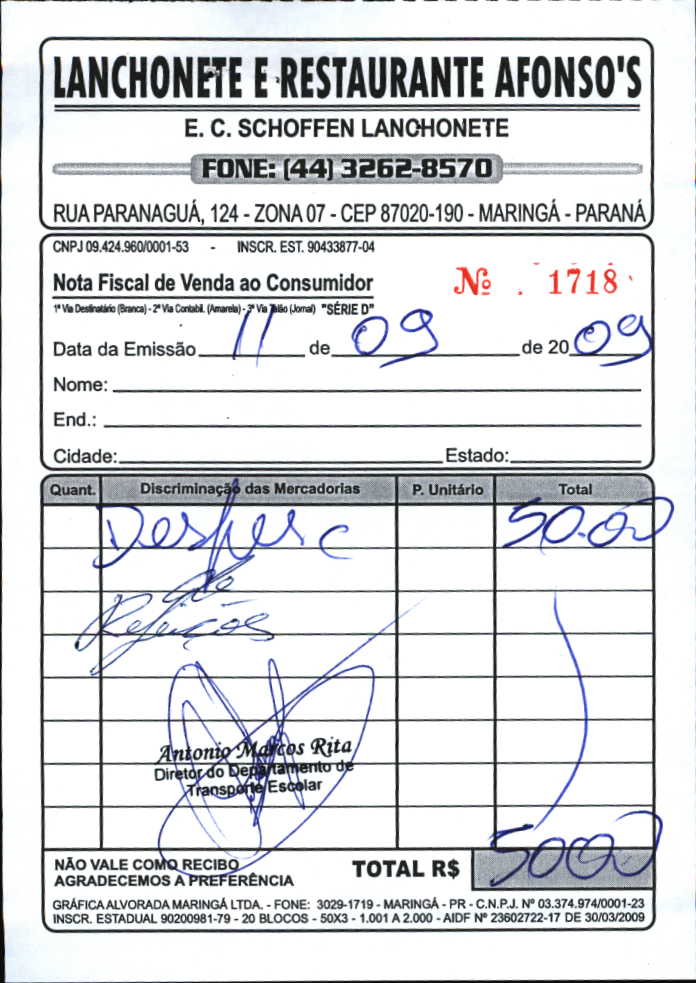 LANCHONETE E RESTAURANTE AFONSO'S
E. C. SCHOFFEN LANCHONETE
FONE: (44) 3262-8570
RUA PARANAGUÁ, 124 - ZONA 07 - CEP 87020-190 - MARINGÁ - PARANÁ
CNPJ 09.424.960/0001-53 - INSCR. EST. 90433877-04
Nota Fiscal de Venda ao Consumidor Nº 1718
1ª Via Destinatário (Branca) - 2ª Via Contabil. (Amarela) - 3ª Via Talão (Jornal) "SÉRIE D"
Data da Emissão 11 de 09 de 2009
Nome:
End.:
Cidade: Estado:
Quant. Discriminação das Mercadorias P. Unitário Total
Despesa 50.00
de
Refeições
Antonio Marcos Rita
Diretor do Departamento de
Transporte Escolar
NÃO VALE COMO RECIBO
AGRADECEMOS A PREFERÊNCIA
TOTAL R$ 5000
GRÁFICA ALVORADA MARINGÁ LTDA. - FONE: 3029-1719 - MARINGÁ - PR - C.N.P.J. Nº 03.374.974/0001-23
INSCR. ESTADUAL 90200981-79 - 20 BLOCOS - 50X3 - 1.001 A 2.000 - AIDF Nº 23602722-17 DE 30/03/2009